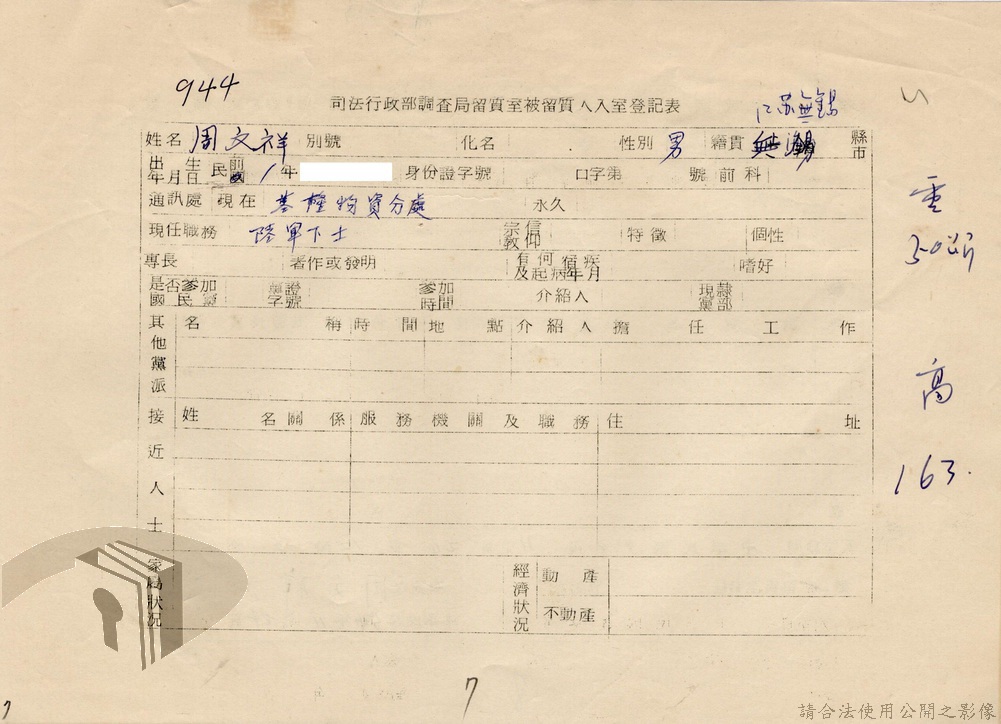 944
司法行政部調查局留質室被留質人入室登記表
江苏無錫
姓名 周文祥 別號 化名 性別 男 籍貫 無錫 縣市
出生年月日 民前國 1年 身份證字號 口字第 號 前科
通訊處 現在 基隆物資分處 永久
現任職務 陸軍下士 宗教信仰 特徵 個性
專長 著作或發明 有何宿疾及起病年月 嗜好
是否參加國民黨 黨證字號 參加時間 介紹人 現隸黨部
其他黨派 名稱 時間 地點 介紹人 擔任工作
接近人士 姓名 關係 服務機關及職務 住址
家屬狀況 經濟狀況 動產
不動產
重
50公斤
高
163.
7
請合法使用公開之影像